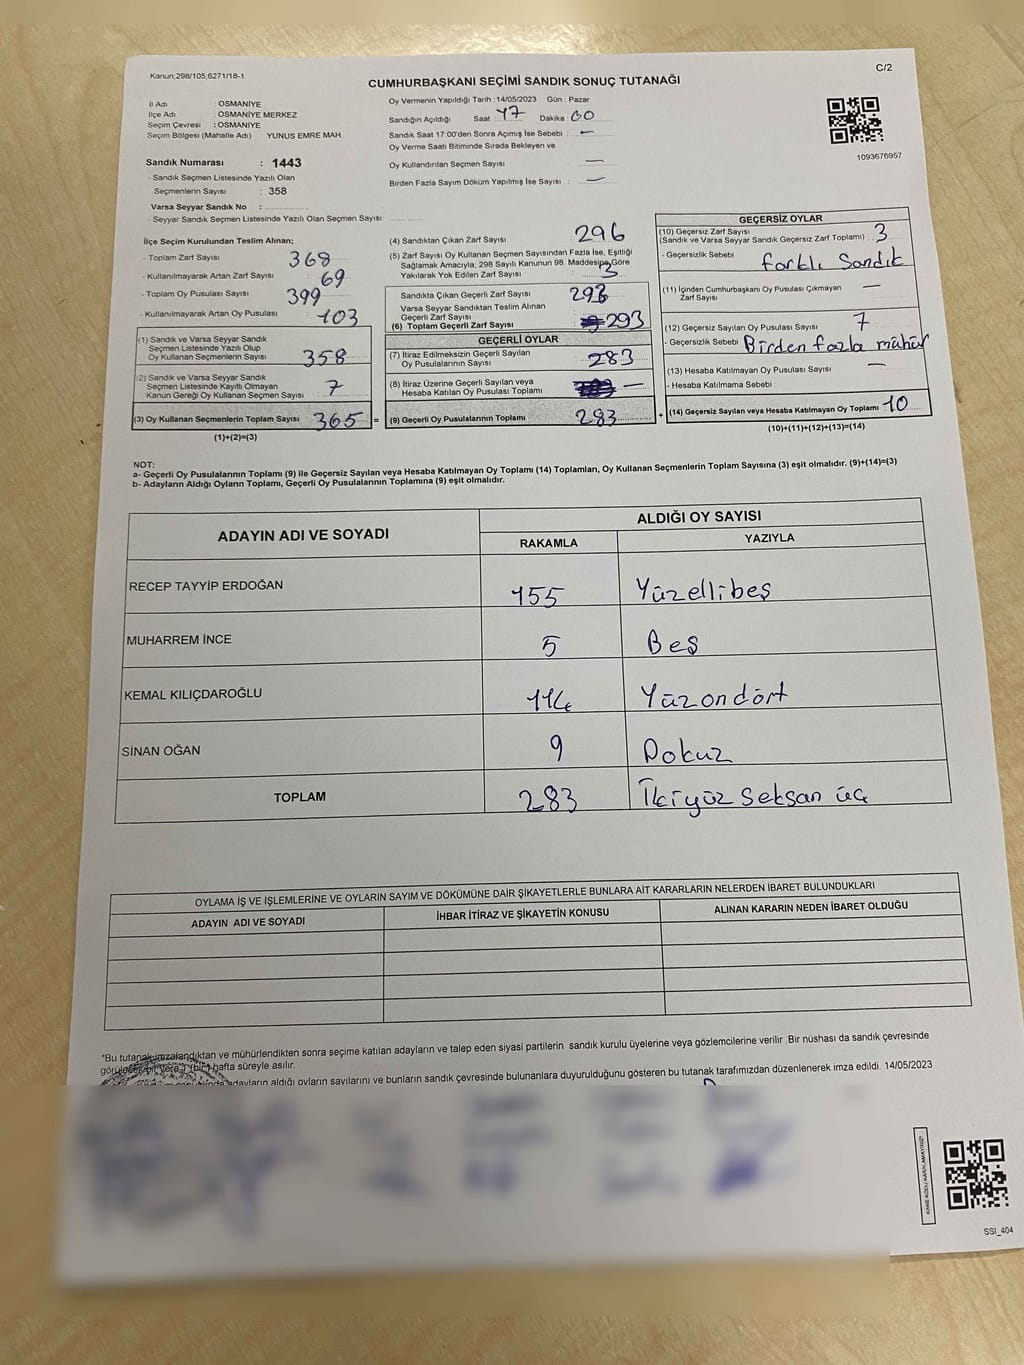 Kanun;298/105;6271/18-1
C/2
CUMHURBAŞKANI SEÇİMİ SANDIK SONUÇ TUTANAĞI
İl Adı : OSMANİYE
İlçe Adı : OSMANİYE MERKEZ
Seçim Çevresi : OSMANİYE
Seçim Bölgesi (Mahalle Adı) : YUNUS EMRE MAH.
Sandık Numarası : 1443
- Sandık Seçmen Listesinde Yazılı Olan
Seçmenlerin Sayısı : 358
Varsa Seyyar Sandık No :
- Seyyar Sandık Seçmen Listesinde Yazılı Olan Seçmen Sayısı:
Oy Vermenin Yapıldığı Tarih : 14/05/2023 Gün : Pazar
Sandığın Açıldığı Saat 17 Dakika 00
Sandık Saat 17:00'den Sonra Açımış İse Sebebi : —
Oy Verme Saati Bitiminde Sırada Bekleyen ve
Oy Kullandırılan Seçmen Sayısı —
Birden Fazla Sayım Döküm Yapılmış İse Sayısı : —
1093676957
İlçe Seçim Kurulundan Teslim Alınan;
- Toplam Zarf Sayısı : 368
- Kullanılmayarak Artan Zarf Sayısı : 69
- Toplam Oy Pusulası Sayısı : 399
- Kullanılmayarak Artan Oy Pusulası : 103
(1) Sandık ve Varsa Seyyar Sandık
Seçmen Listesinde Yazılı Olup
Oy Kullanan Seçmenlerin Sayısı : 358
(2) Sandık ve Varsa Seyyar Sandık
Seçmen Listesinde Kayıtlı Olmayan
Kanun Gereği Oy Kullanan Seçmen Sayısı 7
(3) Oy Kullanan Seçmenlerin Toplam Sayısı 365 =
(1)+(2)=(3)
(4) Sandıktan Çıkan Zarf Sayısı 296
(5) Zarf Sayısı Oy Kullanan Seçmen Sayısından Fazla İse, Eşitliği
Sağlamak Amacıyla, 298 Sayılı Kanunun 98. Maddesine Göre
Yakılarak Yok Edilen Zarf Sayısı 3
Sandıkta Çıkan Geçerli Zarf Sayısı 293
Varsa Seyyar Sandıktan Teslim Alınan
Geçerli Zarf Sayısı
(6) Toplam Geçerli Zarf Sayısı 293
GEÇERLİ OYLAR
(7) İtiraz Edilmeksizin Geçerli Sayılan
Oy Pusulalarının Sayısı : 283
(8) İtiraz Üzerine Geçerli Sayılan veya
Hesaba Katılan Oy Pusulası Toplamı —
(9) Geçerli Oy Pusulalarının Toplamı 283 +
GEÇERSİZ OYLAR
(10) Geçersiz Zarf Sayısı
(Sandık ve Varsa Seyyar Sandık Geçersiz Zarf Toplamı) 3
- Geçersizlik Sebebi : farklı Sandık
(11) İçinden Cumhurbaşkanı Oy Pusulası Çıkmayan
Zarf Sayısı —
(12) Geçersiz Sayılan Oy Pusulası Sayısı : 7
- Geçersizlik Sebebi : Birden fazla mühür
(13) Hesaba Katılmayan Oy Pusulası Sayısı : —
- Hesaba Katılmama Sebebi :
(14) Geçersiz Sayılan veya Hesaba Katılmayan Oy Toplamı 10
(10)+(11)+(12)+(13)=(14)
NOT:
a- Geçerli Oy Pusulalarının Toplamı (9) ile Geçersiz Sayılan veya Hesaba Katılmayan Oy Toplamı (14) Toplamları, Oy Kullanan Seçmenlerin Toplam Sayısına (3) eşit olmalıdır. (9)+(14)=(3)
b- Adayların Aldığı Oyların Toplamı, Geçerli Oy Pusulalarının Toplamına (9) eşit olmalıdır.
ADAYIN ADI VE SOYADI
ALDIĞI OY SAYISI
RAKAMLA YAZIYLA
RECEP TAYYİP ERDOĞAN 155 Yüzellibeş
MUHARREM İNCE 5 Beş
KEMAL KILIÇDAROĞLU 114 Yüzondört
SİNAN OĞAN 9 Dokuz
TOPLAM 283 İkiyüz Seksan üç
OYLAMA İŞ VE İŞLEMLERİNE VE OYLARIN SAYIM VE DÖKÜMÜNE DAİR ŞİKAYETLERLE BUNLARA AİT KARARLARIN NELERDEN İBARET BULUNDUKLARI
ADAYIN ADI VE SOYADI İHBAR İTİRAZ VE ŞİKAYETİN KONUSU ALINAN KARARIN NEDEN İBARET OLDUĞU
*Bu tutanak imzalandıktan ve mühürlendikten sonra seçime katılan adayların ve talep eden siyasi partilerin sandık kurulu üyelerine veya gözlemcilerine verilir .Bir nüshası da sandık çevresinde
görülecek bir yere 1 (bir) hafta süreyle asılır.
adayların aldığı oyların sayılarını ve bunların sandık çevresinde bulunanlara duyurulduğunu gösteren bu tutanak tarafımızdan düzenlenerek imza edildi. 14/05/2023
SSI_404